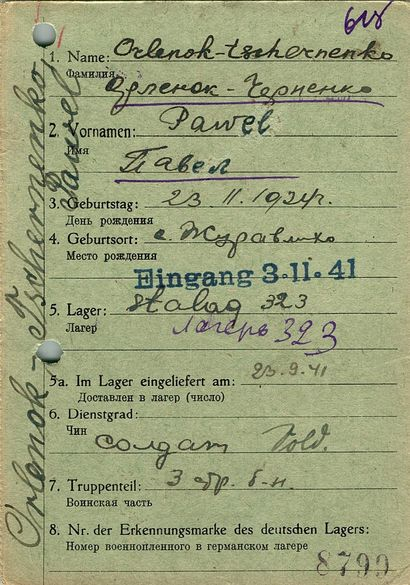 618
1. Name: Orlenok-tschernenko
Фамилия
Орленок-Черненко
2. Vornamen: Pawel
Имя
Павел
3. Geburtstag: 23.II.1924г.
День рождения
4. Geburtsort: с. Журавлихо
Место рождения
Eingang 3.11.41
5. Lager: Stalag 323
Лагер
Лагерь 323
5a. Im Lager eingeliefert am: 23.9.41
Доставлен в лагер (число)
6. Dienstgrad:
Чин
солдат Sold.
7. Truppenteil: 3
Воинская часть
8. Nr. der Erkennungsmarke des deutschen Lagers:
Номер военнопленного в германском лагере
8799
Orlenok-Tschernenko
Pawel